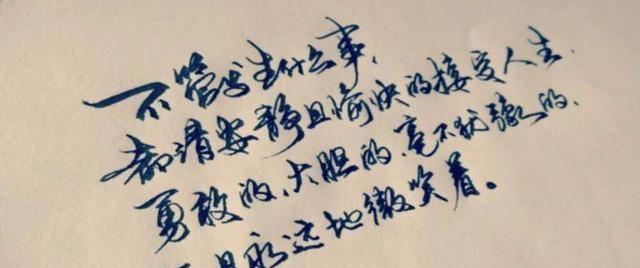 不管发生什么事,
都请安静且愉快的接受人生.
勇敢的、大胆的、毫不犹豫的.
且永远地微笑着。